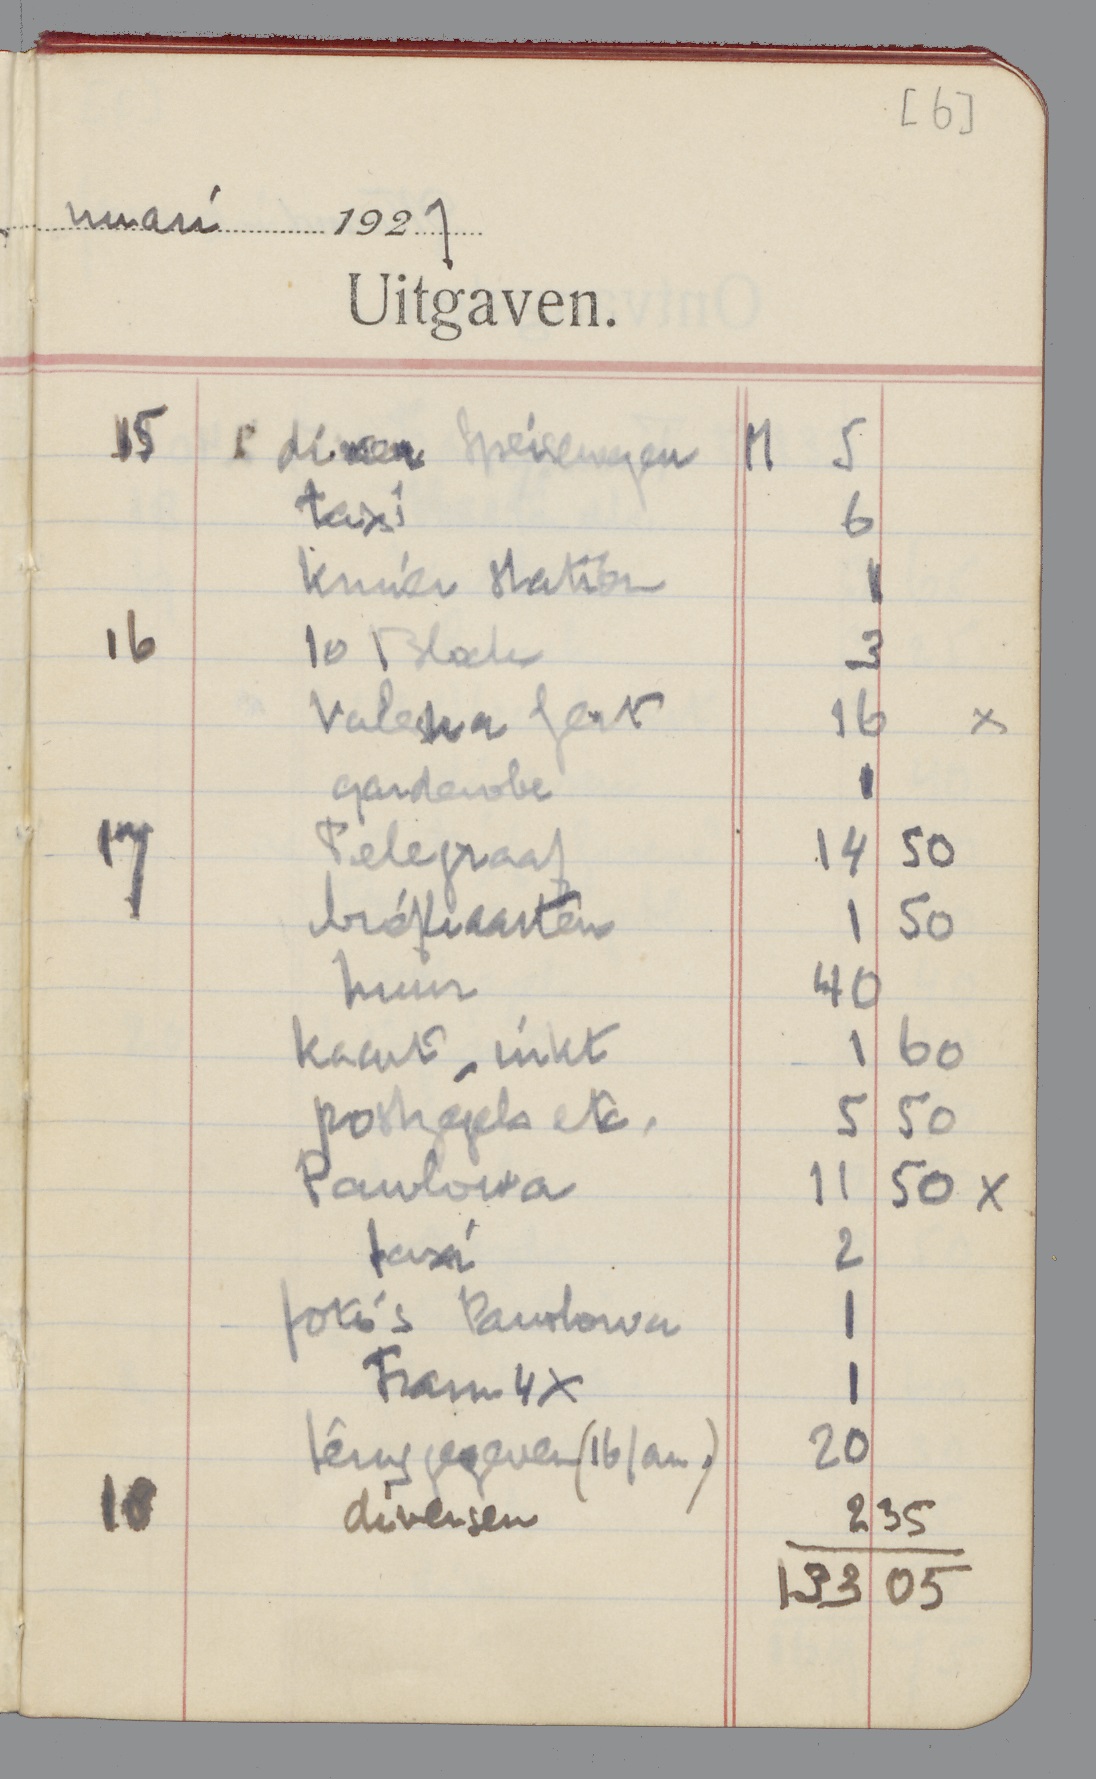 [6]
nuari 1927
Uitgaven.
15 diner Speisewagen M 5
taxi 6
kruier station 1
16 10 Block 3
Valeska Gert 16 x
garderobe 1
17 Telegraaf 14 50
briefkaarten 1 50
huur 40
kaart, inkt 1 60
postzegels etc. 5 50
Pawlowa 11 50 x
taxi 2
foto's Pawlowa 1
Tram 4x 1
terug gegeven (16/an.) 20
18 diversen 2 35
133 05